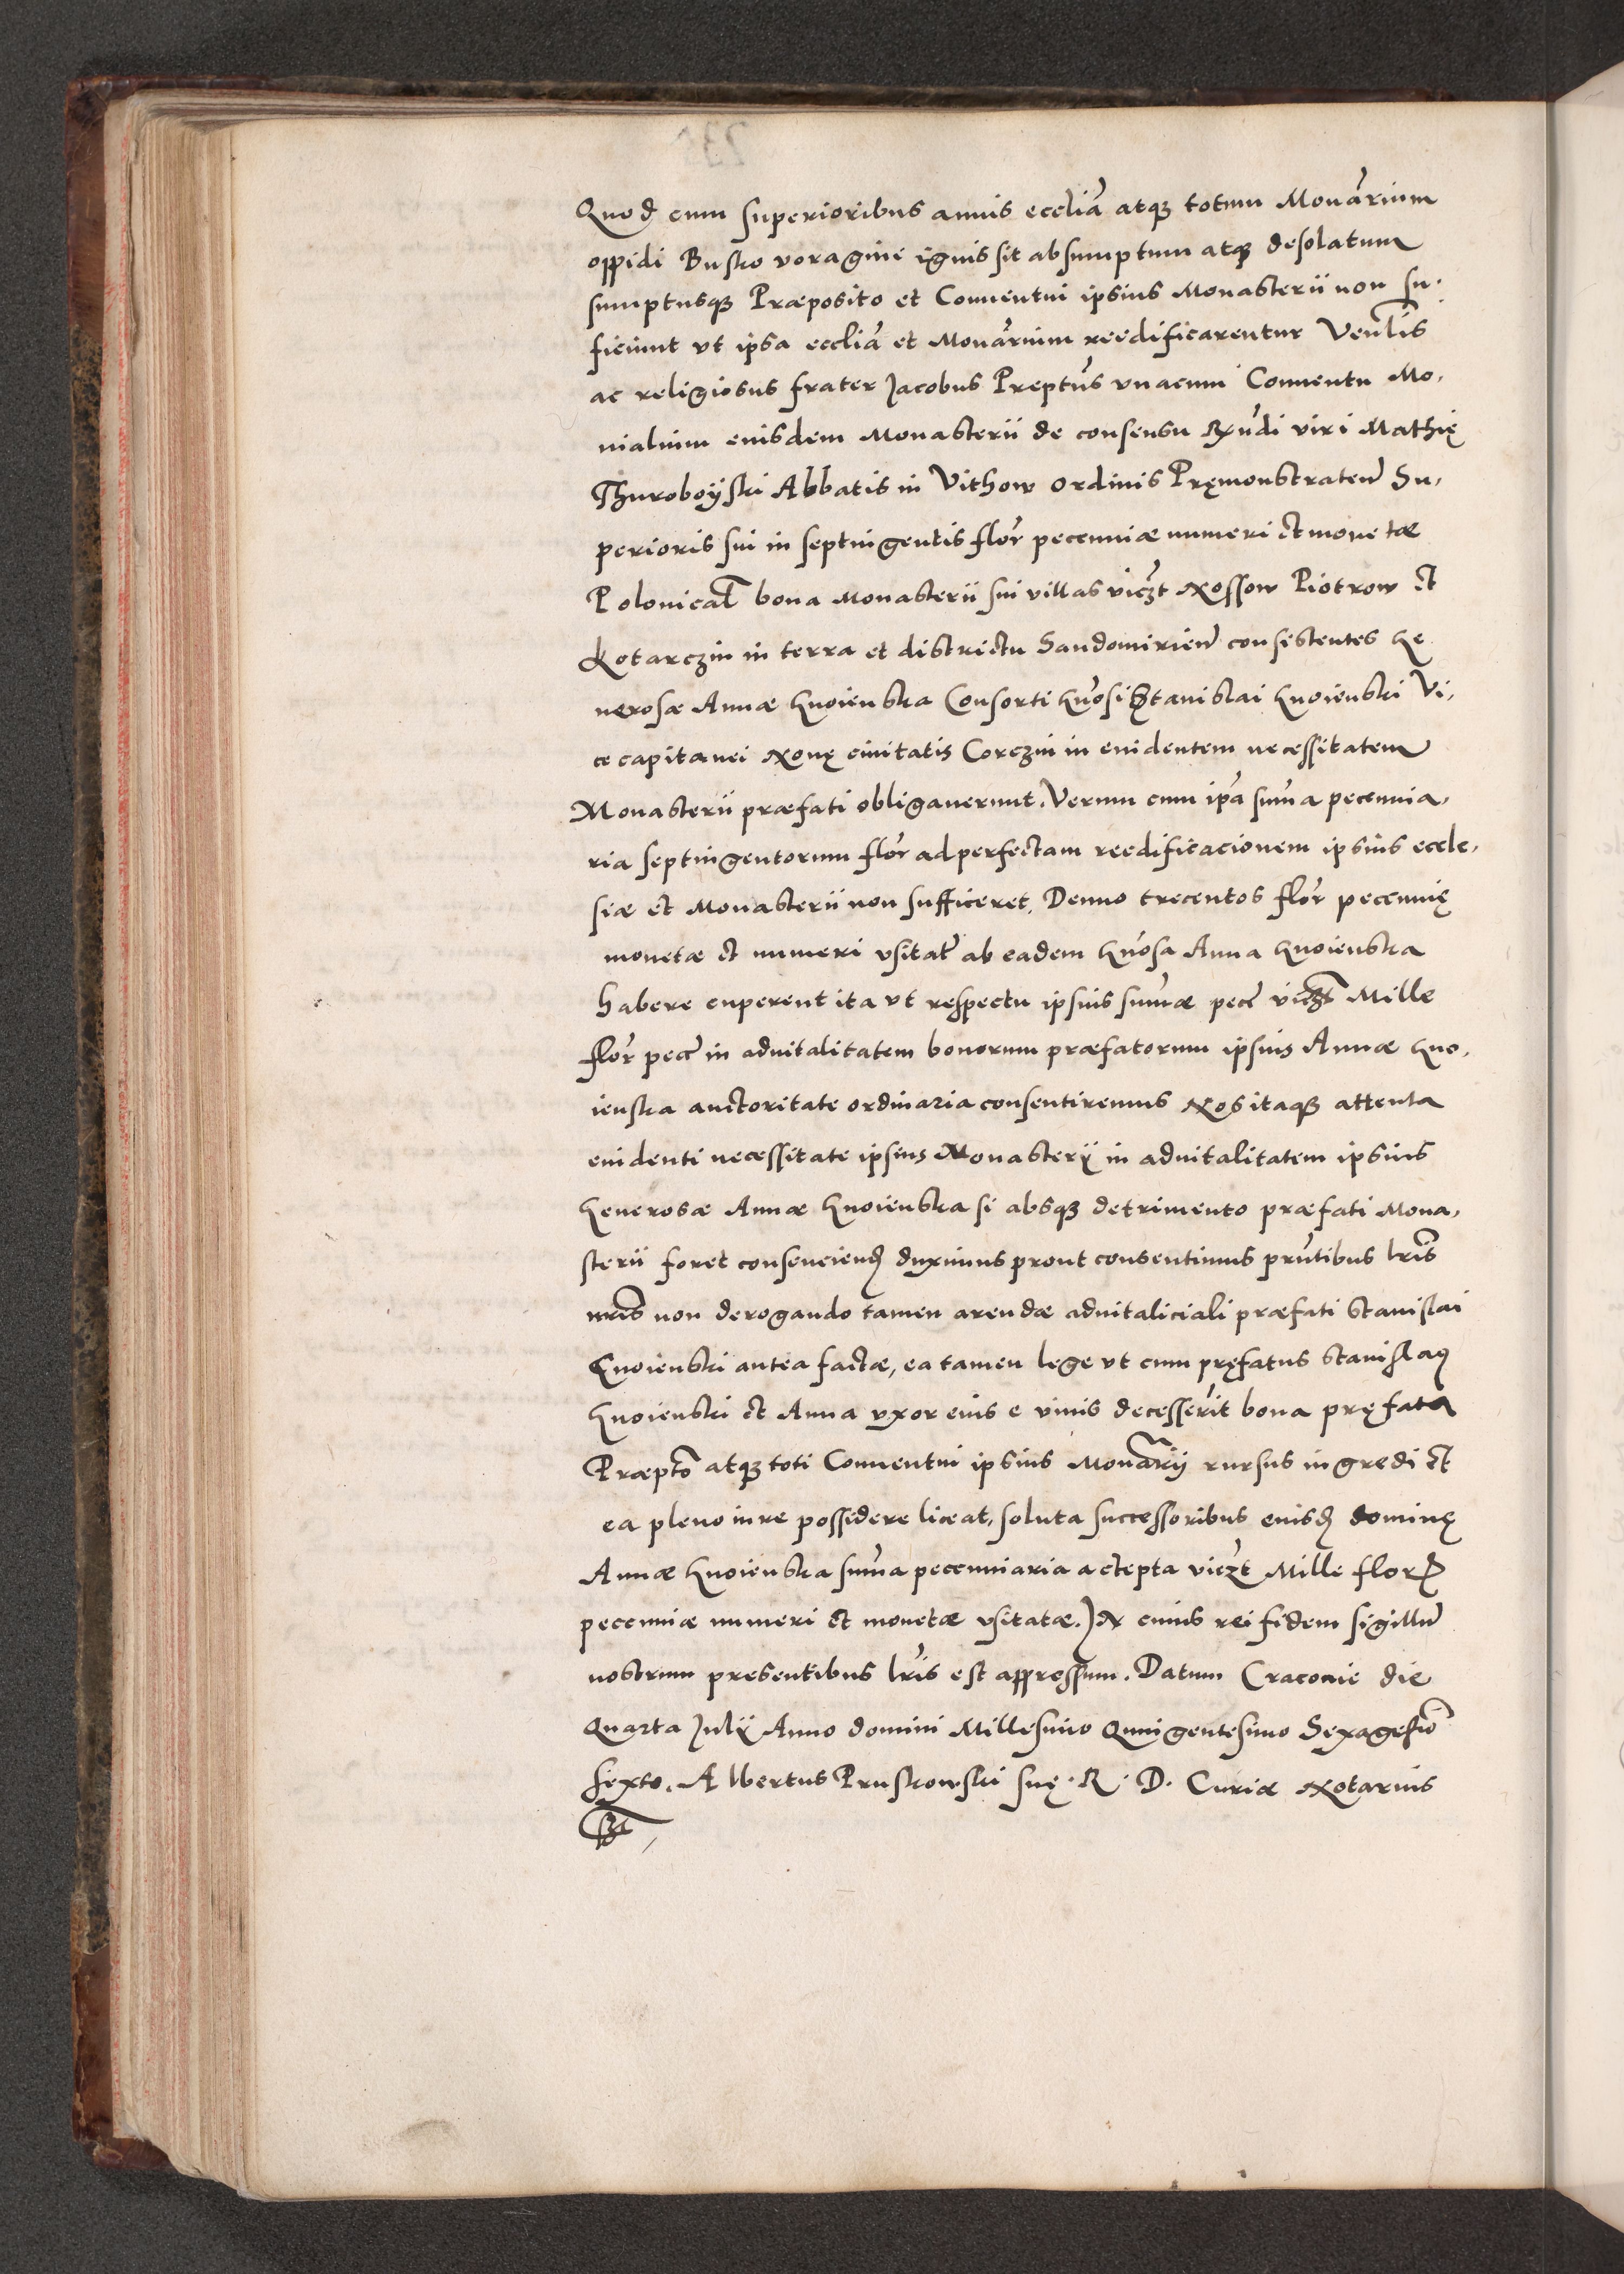 Quod cum superioribus annis eccliã atqꝫ totum Monãrium
oppidi Busko voragine ignis sit absumptum atqꝫ desolatum
sumptusqꝫ Præposito et Conuentui ipsius Monasterii non su,
ficiunt vt ipsa ecclia et Monãrium reedificarentur Venlis
ac religiosus frater Jacobus Preptus vnacum Conuentu Mo,
nialium eiusdem Monasterii de consensu Rndi viri Mathię
Thuroboÿski Abbatis in Vithow ordinis Pręmonstraten Su,
perioris sui in septingentis flor pecunniæ numeri et monetæ
Polonical bona Monasterii sui villas viczt Nossow Piotrow et
Kotarczin in terra et districtu Sandomirien consistentes Ge
nerosæ Annæ Gnoienska Consorti Gnosi Stanislai Gnoienski Vi,
ce capitanei Nouę ciuitatis Corczin in euidentem necessitatem
Monasterii præfati obligauerunt. Verum cum ipa suma pecunnia,
ria septingentorum flor ad perfectam reedificacionem ipsius eccle,
siæ et Monasterii non sufficeret. Denuo trecentos flor pecunnię
monetæ et numeri vsitat ab eadem Gnosa Anna Gnoienska
habere cuperent ita vt respectu ipsius sumæ pecc viczt Mille
flor pecc in aduitalitatem bonorum præfatorum ipsius Annæ Gno,
ienska auctoritate ordinaria consentiremus Nos itaqꝫ attenta
euidenti necessitate ipsius Monasterÿ in aduitalitatem ipsius
Generosæ Annæ Gnoienska si absqꝫ detrimento præfati Mona,
sterii foret consenciend duximus prout consentimus prntibus lris
nris non derogando tamen arendæ aduitaliciali præfati Stanislai
Gnoienski antea factæ, ea tamen lege vt cum pręfatus Stanislaꝯ
Gnoienski et Anna vxor eius e viuis decesserit bona pręfata
Præpto atqꝫ toti Conuentui ipsius Monãrÿ rursus ingredi et
ea pleno iure possidere liceat, soluta successoribus eiusd dominę
Annæ Gnoienska suma pecunniaria accepta viczt Mille flor
pecunniæ numeri et monetæ vsitatæ. In cuius rei fidem sigillu
nostrum presentibus lris est appressum. Datum Cracouie die
Quarta Julÿ Anno domini Millesimo Quingentesimo Sexagesio
sexto. Albertus Pruskowski suę. R. D. Curiæ Notarius